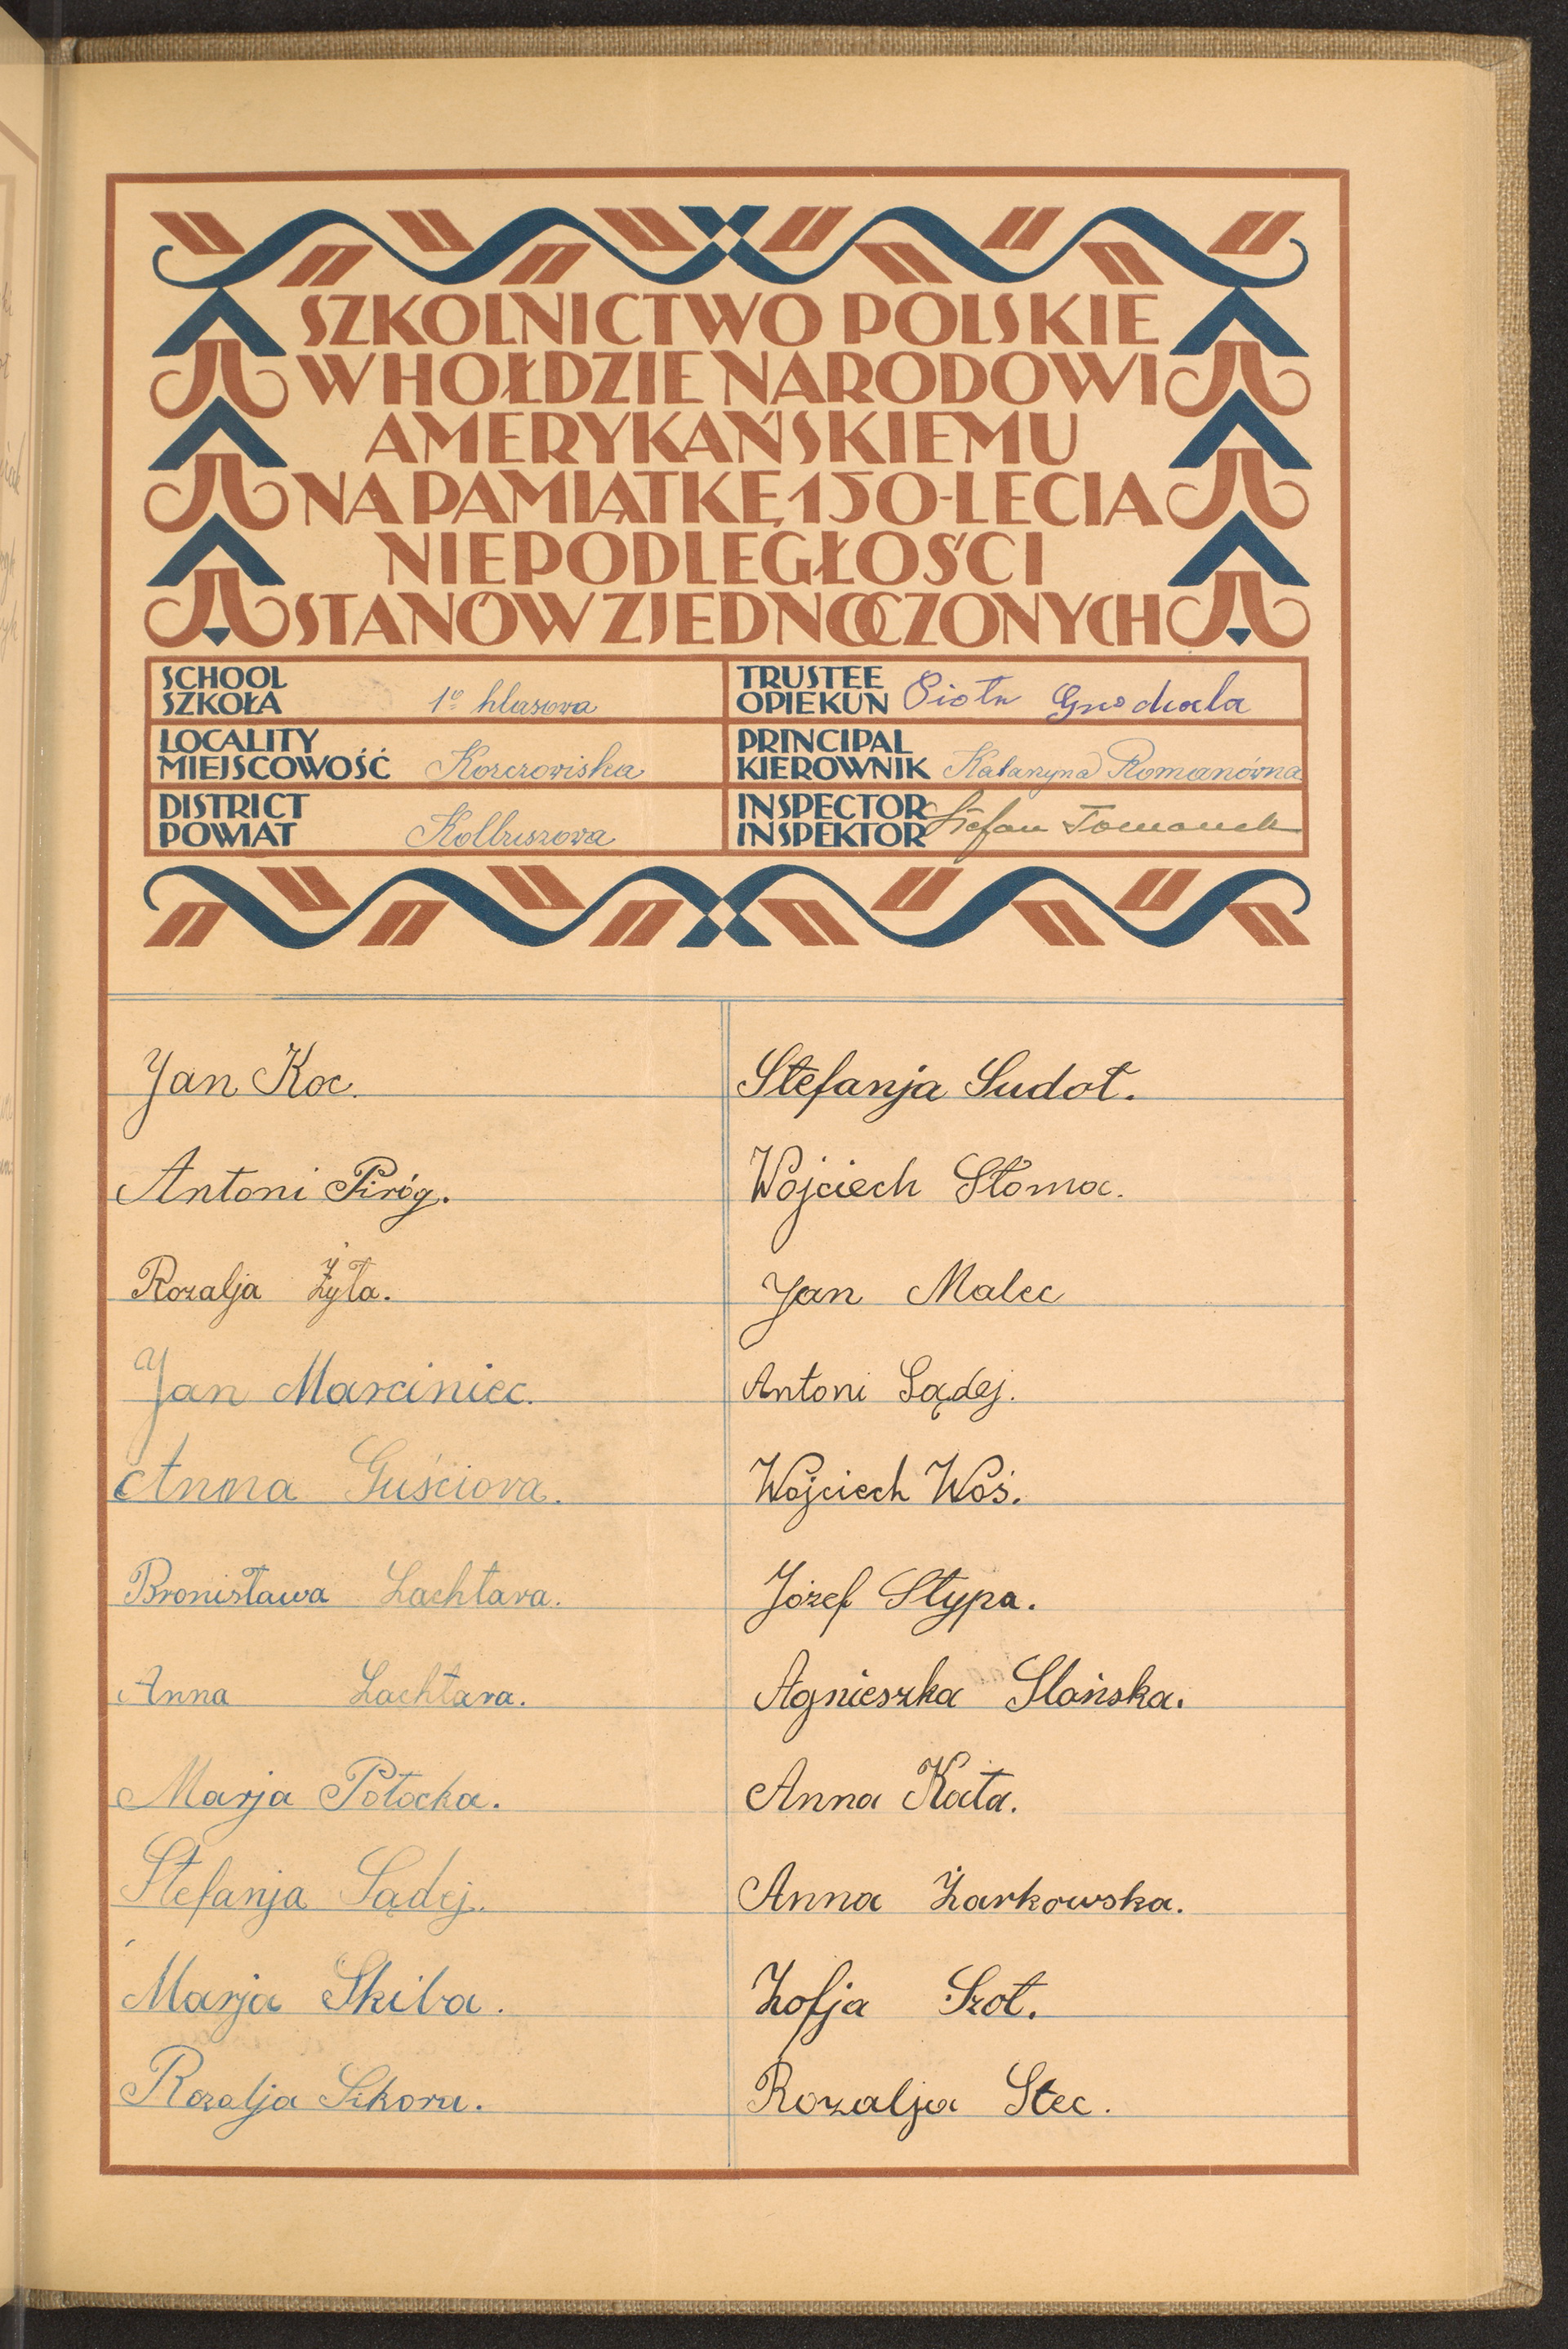 SZKOLNICTWO POLSKIE
W HOŁDZIE NARODOWI
AMERYKAŃSKIEMU
NA PAMIĄTKĘ 150-LECIA
NIEPODLEGŁOŚCI
STANÓW ZJEDNOCZONYCH
SCHOOL
SZKOŁA 1º klasowa
TRUSTEE
OPIEKUN Piotr
LOCALITY
MIEJSCOWOŚĆ Korczowiska
PRINCIPAL
KIEROWNIK Katarzyna Romanówna
DISTRICT
POWIAT Kolbuszowa
INSPECTOR
INSPEKTOR Stefan Tomanek
Jan Koc.
Antoni Piróg.
Rozalja Żyła.
Jan Marciniec.
Anna Guściora.
Bronisława Lachtara.
Anna Lachtara.
Marja Potocka.
Stefanja Sądej.
Marja Skiba.
Rozalja Sikora.
Stefanja Sudoł.
Wojciech Słoma.
Jan Malec
Antoni Sądej.
Wojciech Woś.
Józef Stypa.
Agnieszka Slańska.
Anna Kata.
Anna Żarkowska.
Zofja Szot.
Rozalja Stec.